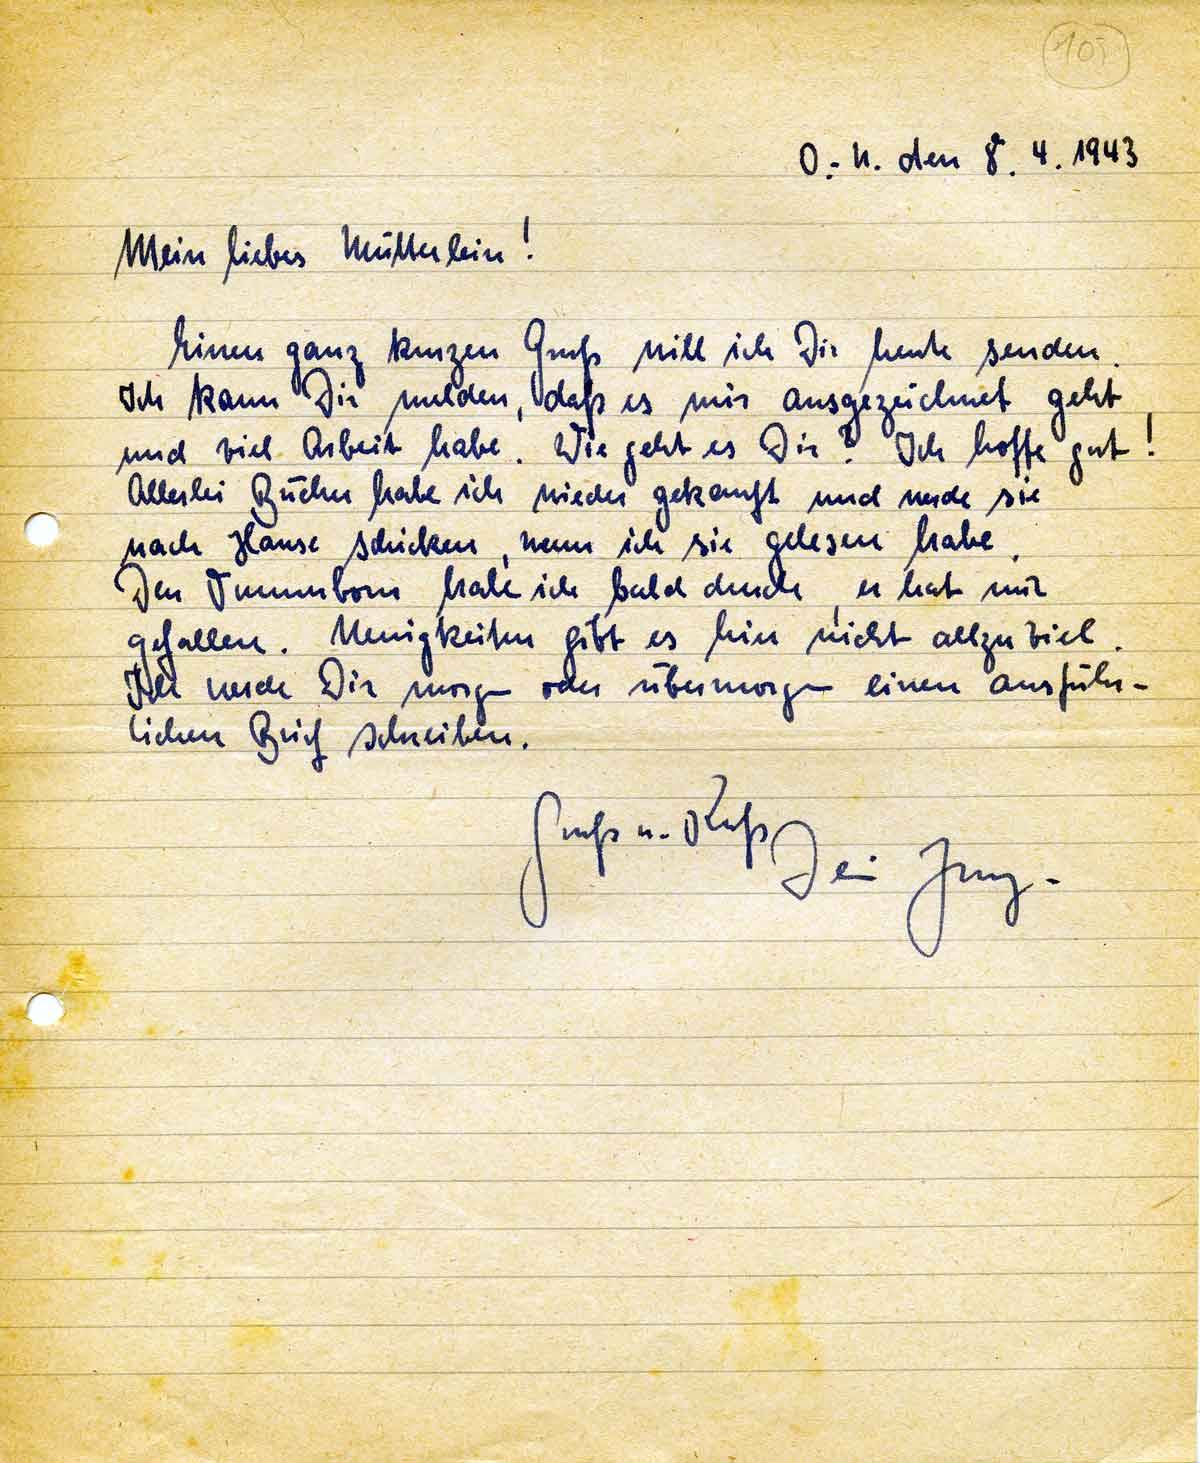 105
O.-U. den 8. 4. 1943
Mein liebes Mütterlein!
Einen ganz kurzen Gruß will ich Dir heute senden.
Ich kann Dir melden, daß es mir ausgezeichnet geht
und viel Arbeit habe. Wie geht es Dir? Ich hoffe gut!
Allerlei Bücher habe ich wieder gekauft und werde sie
nach Hause schicken, wenn ich sie gelesen habe.
Den habe ich bald durch, er hat mir
gefallen. Neuigkeiten gibt es hier nicht allzu viel.
Ich werde Dir morgen oder übermorgen einen ausführ-
lichen Brief schreiben.
Gruß u. Kuß
Dein Jung-